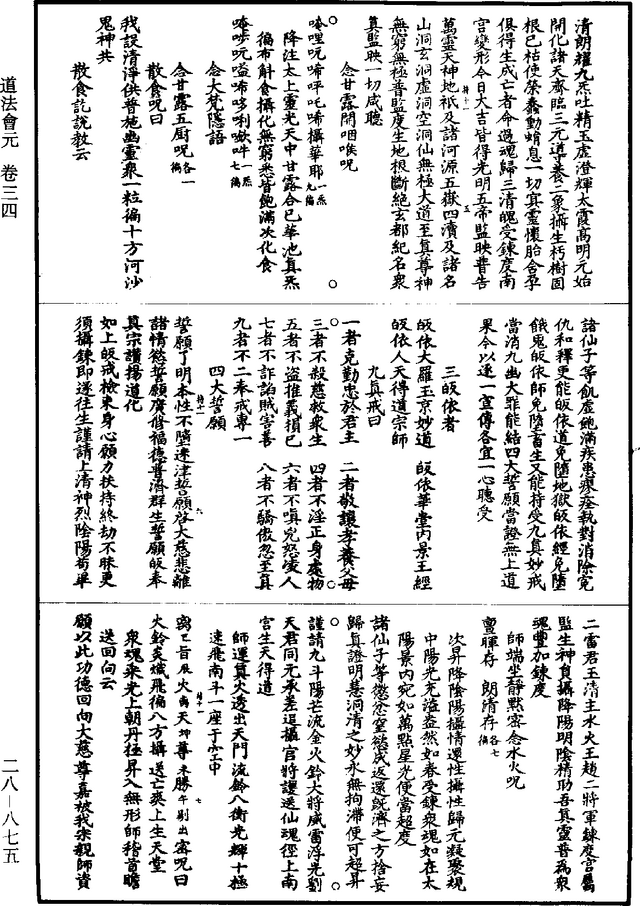 道法會元　卷三四
清朗耀九炁吐精玉虛澄輝太霞高明元始
開化諸天齋臨三元導養二象攝生朽樹固
根已枯使榮蠢動蛸息一切真靈懷胎含孕
俱得生成亡者命過魂歸三清魄受鍊度南
宮變形今日大吉皆得光明五帝監映普告
萬靈天神地祇及諸河源五嶽四瀆及諸名
山洞玄洞虛洞空洞仙無極大道至真尊神
無窮無極普監度生地根斷絕玄都紀名衆
真監映一切咸聽
念甘露開咽喉呪
唵哩吼唏呼吒唏攝華耶一炁九徧
降注太上靈光天中甘露合已華池真炁
徧布斛食攝化無窮悉皆飽滿次化食
念大梵隱語
念甘露五厨呪各一徧
散食呪曰
我設清淨供普施幽靈衆一粒徧十方河沙
鬼神共
散食訖說教云
諸仙子等飢虛飽滿疾患瘳痊執對消除冤
仇和釋更能皈依道免墮地獄皈依經免墮
餓鬼皈依師免墮畜生又能持受九真妙戒
當消九幽大罪能結四大誓願當證無上道
果今以逐一宣傳各宜一心聽受
三皈依者
皈依大羅玉京妙道　皈依華堂内景王經
皈依人天得道宗師
九真戒曰
一者克勤忠於君主　二者敬讓孝養父母
三者不殺慈救衆生　四者不淫正身處物
五者不盜推義損已　六者不嗔兇怒凌人
七者不詐諂賊害善　八者不驕傲忽至真
九者不二奉戒專一
四大誓願
誓願了明本性不隨迷津誓願啓大慈悲離
諸情慾誓願廣修福德普濟群生誓願皈奉
真宗讚揚道化
如上皈戒檢束身心願力扶持終劫不昧更
須攝鍊即遂往生謹請上清神烈陰陽荀畢
二雷君玉清主水火王趙二將軍鍊度官屬
監生神負攝降陽明陰精助吾真靈普為衆
魂豐加鍊度
師端坐靜默密念水火呪
亶暉存　朗清存各七徧
次昇降陰陽攝情還性攝性歸元凝聚規
中陽光充溢盎然如春受鍊衆魂如在太
陽景内宛如萬點星光便當超度
諸仙子等懲忿窒慾咸返還既濟之方捨妄
歸真證明慧洞清之妙永無拘滯便可超昇
謹請九斗陽芒流金火鈴大將威雷浮先劉
天君同元承差追攝官將護送仙魂徑上南
宮生天得道
師運真火透出天門流鈴八衝光輝十極
速飛南斗一座于空中
火鈴炎熾飛徧八方攝送亡爽上生天堂
衆魂乘光上朝丹極昇入無形師稽首瞻
送回向云
願以此功德回向大慈尊嘉被我宗親師資
二八—八七五